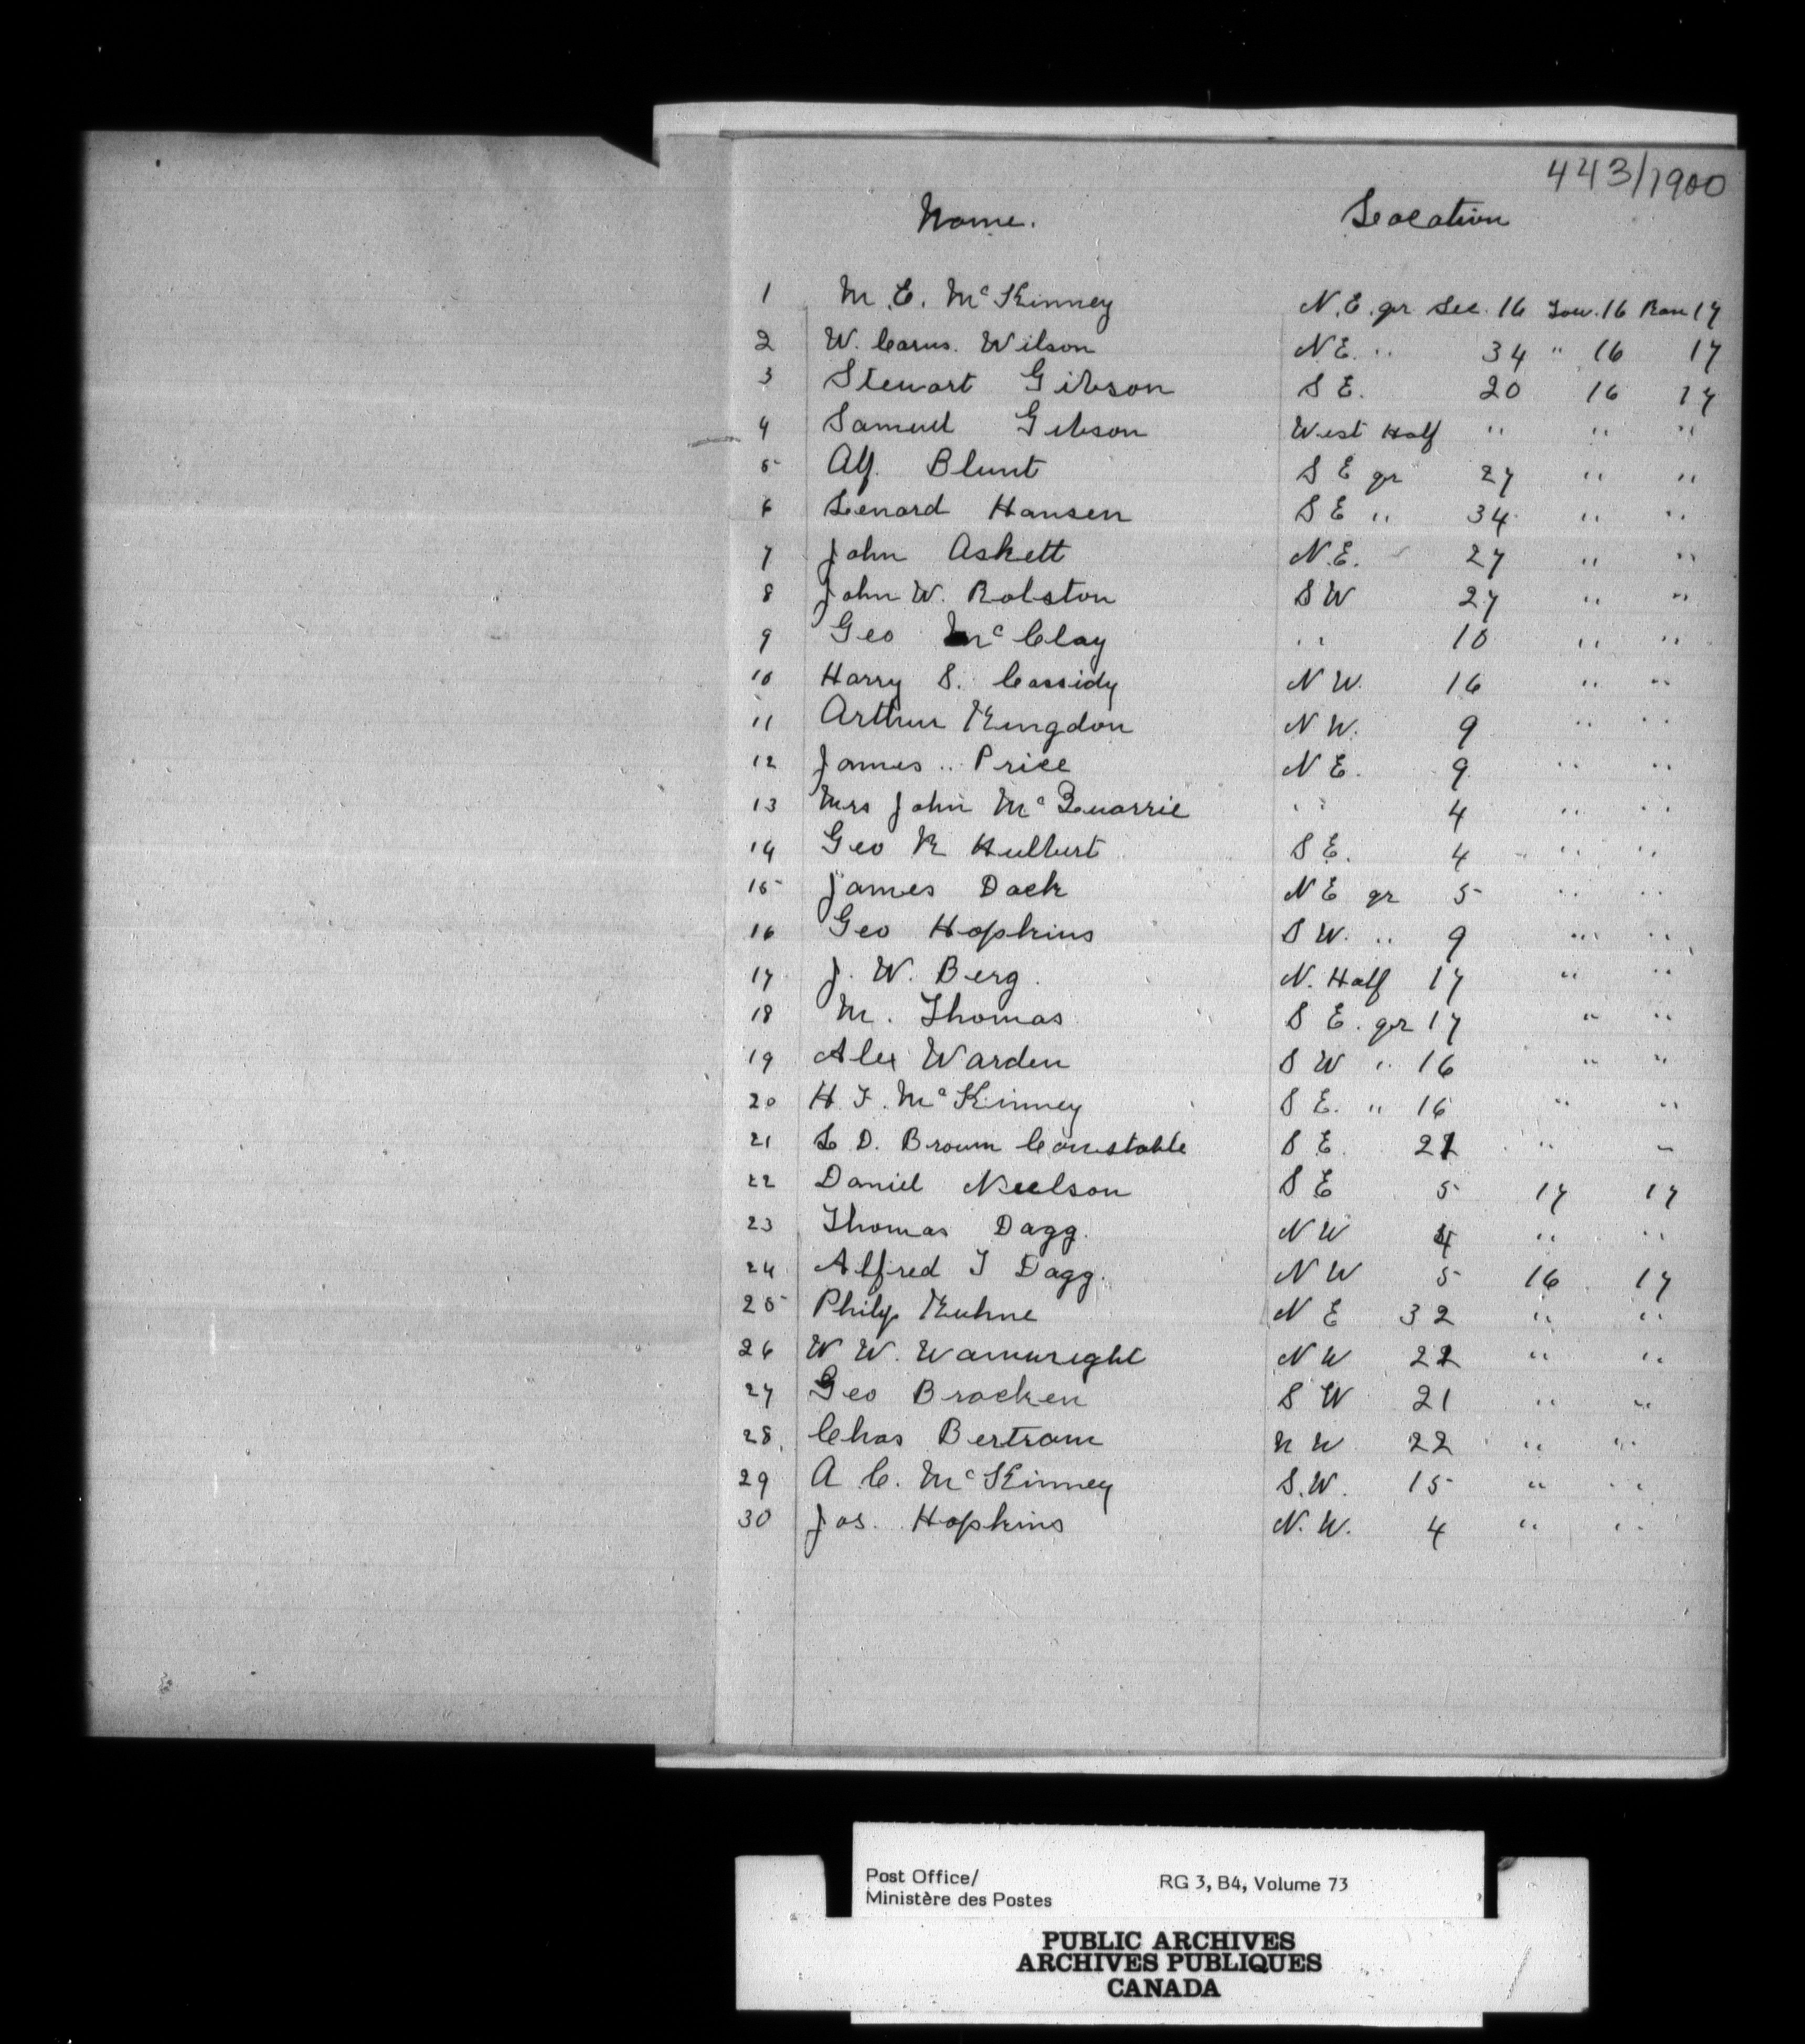 443/1900
Name. Location
1 M. E. McKinney N. E. qr Sec. 16 Tow. 16 Ran 17
2 W. Carus. Wilson N E. " 34 " 16 17
3 Stewart Gibson S E. 20 16 17
4 Samuel Gibson West Half " " "
5 Alf. Blunt S E qr 27 " "
6 Lenard Hansen S E " 34 " "
7 John Askett N. E. " 27 " "
8 John W. Rolston S W 27 " "
9 Geo McClay " 10 " "
10 Harry S. Cassidy N W. 16 " "
11 Arthur Kingdon N W. 9 " "
12 James Price N E. 9 " "
13 Mrs John McQuarrie " 4 " "
14 Geo R Hulbert S E. 4 " "
15 James Dack N E qr 5 " "
16 Geo Hopkins S W. " 9 " "
17 J. W. Berg. N. Half 17 " "
18 M. Thomas S E. qr 17 " "
19 Alex Warden S W " 16 " "
20 H. F. McKinney S E. " 16 " "
21 L D. Brown Constable S E. " "
22 Daniel Neelson S E 5 17 17
23 Thomas Dagg. N W 4 " "
24 Alfred T Dagg. N W 5 16 17
25 Philip Kuhne N E 32 " "
26 W W. Wainwright N W " "
27 Geo Bracken S W 21 " "
28. Chas Bertram N W 22 " "
29 A C. McKinney S. W. 15 " "
30 Jos. Hopkins N. W. 4 " "
Post Office/ RG 3, B4, Volume 73
Ministère des Postes
PUBLIC ARCHIVES
ARCHIVES PUBLIQUES
CANADA